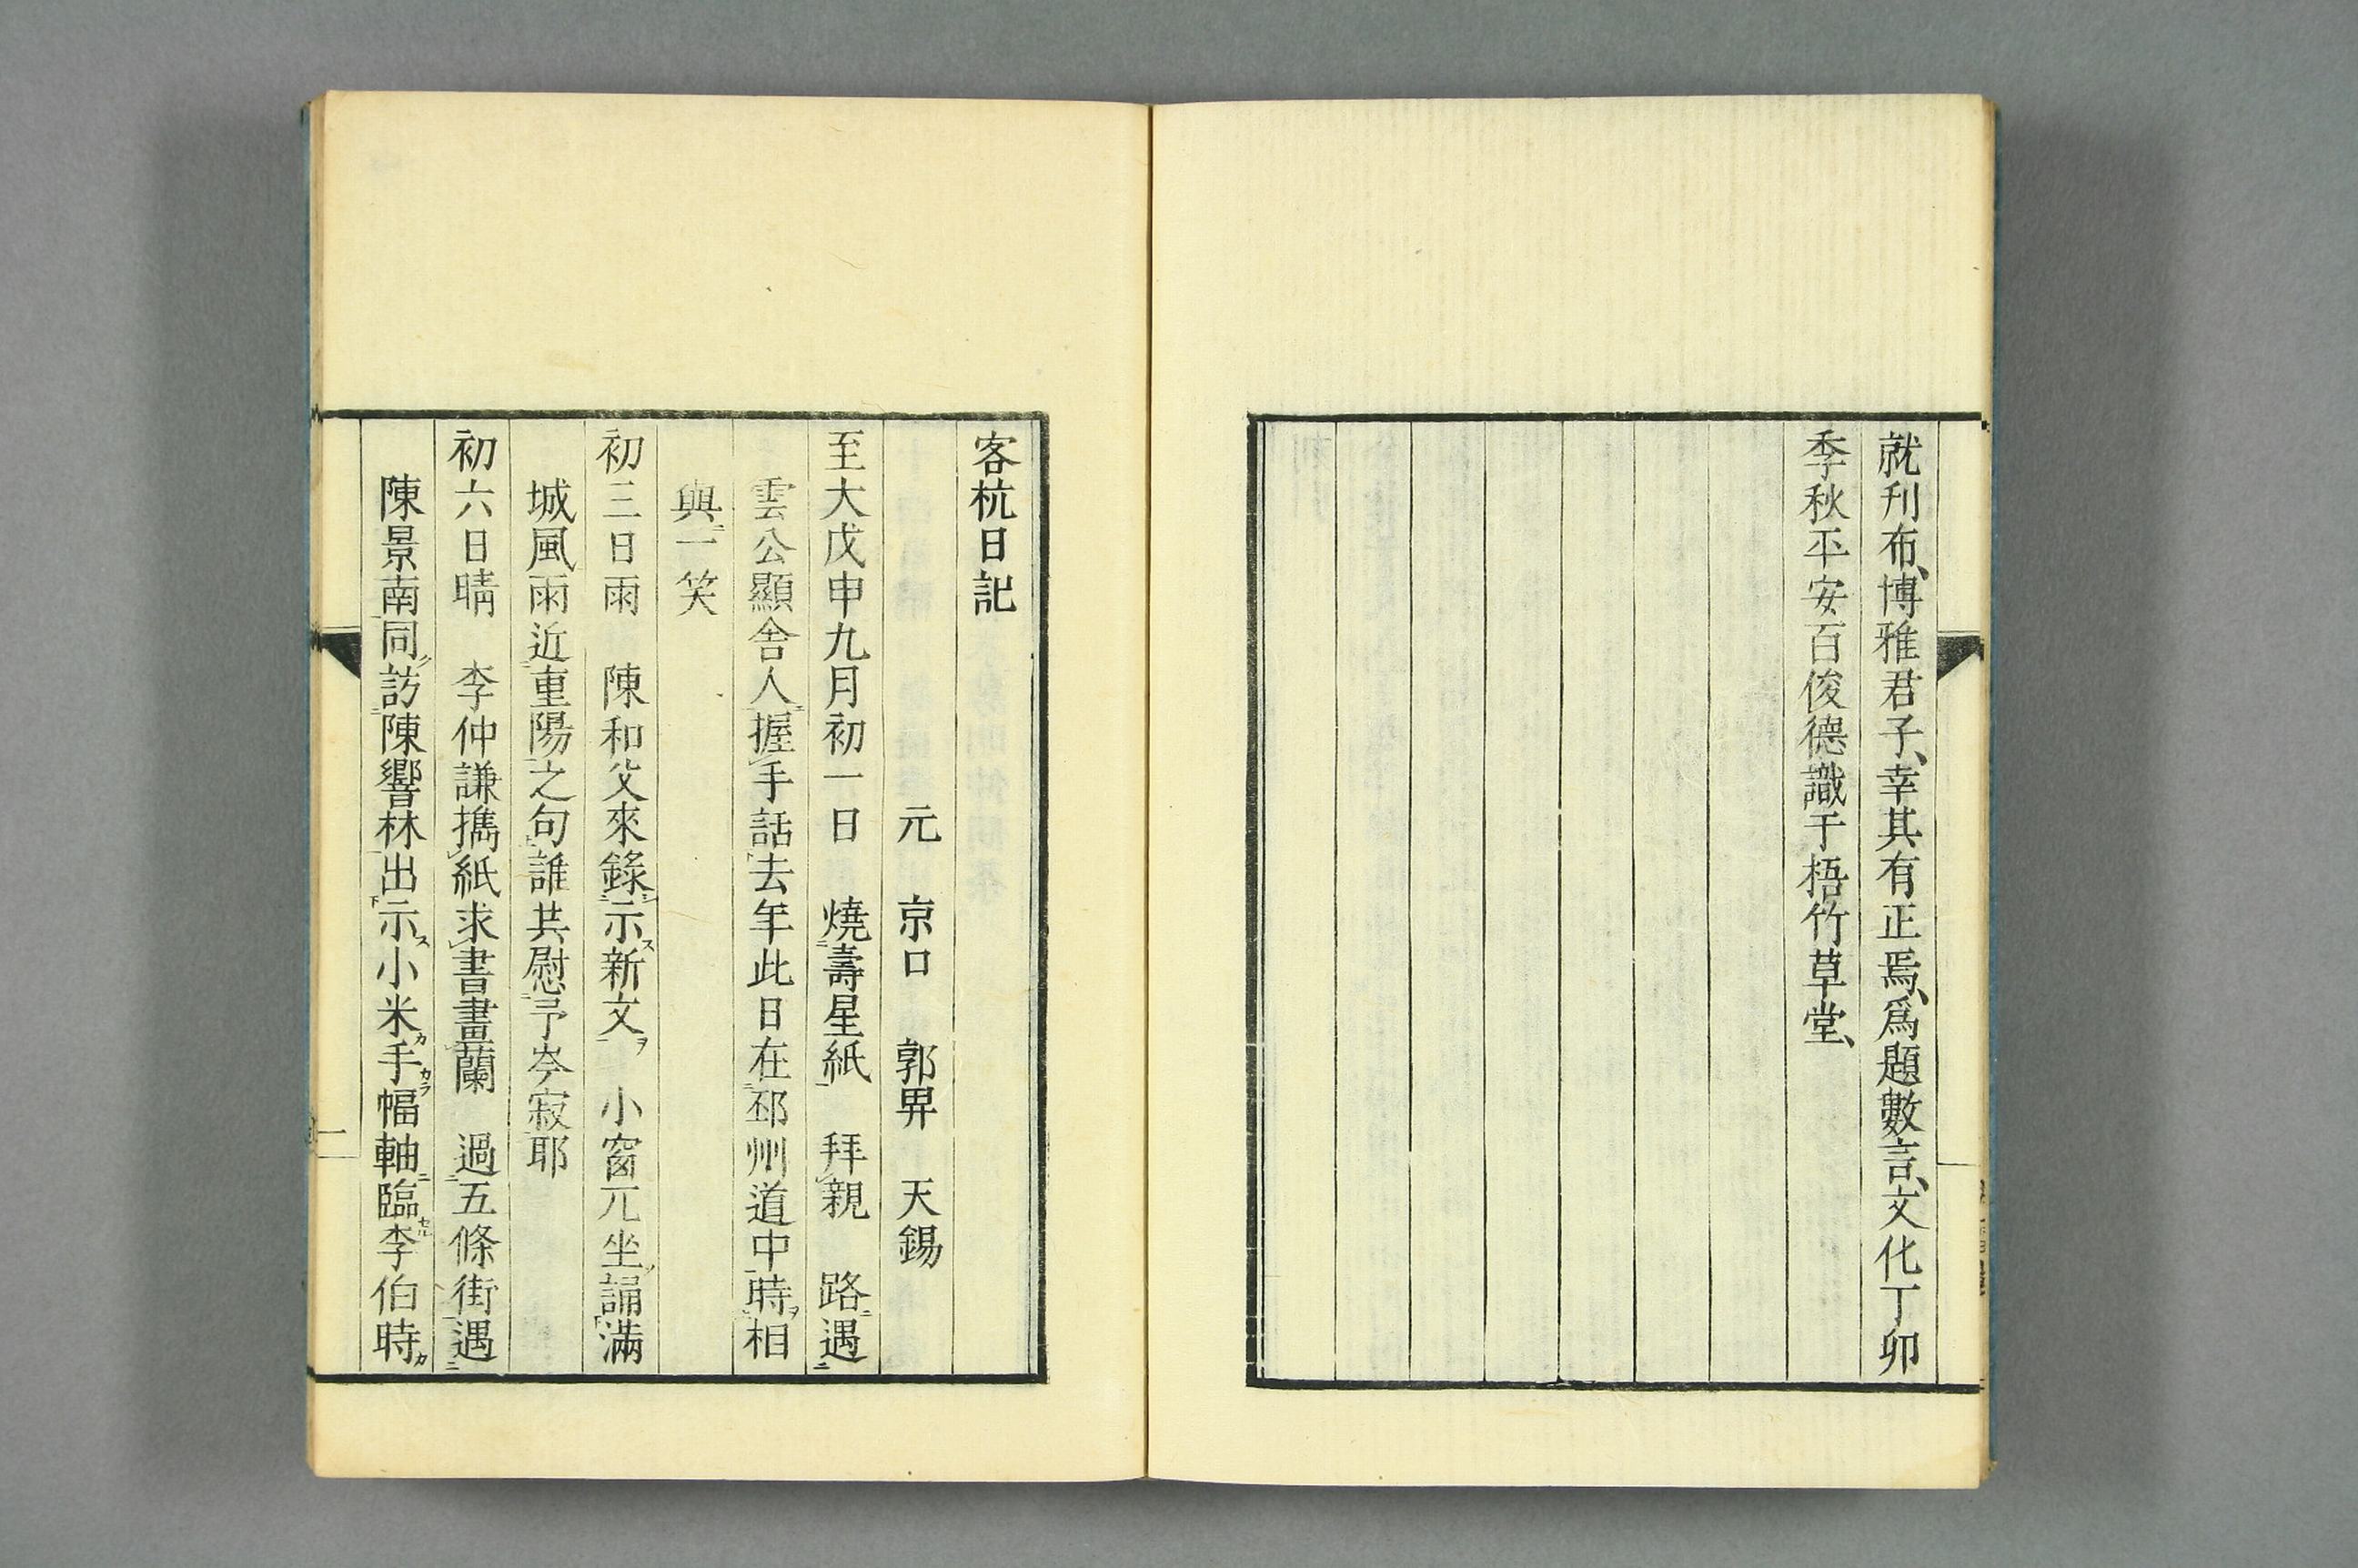 就刋布、博雅君子、幸其有正焉、爲題數言、文化丁卯
季秋平安百俊德識于梧竹草堂、
客杭日記
元　京口　郭畀　天錫
至大戊申九月初一日　燒壽星紙　拜親　路遇
雲公顯舍人握手話去年此日在邳州道中時相
與一笑
初三日雨　陳和父來錄示新文　小窗兀坐誦滿
城風雨近重陽之句誰其慰予岑寂耶
初六日晴　李仲謙擕紙求書畫蘭　過五條街遇
陳景南同訪陳響林出示小米手幅軸臨李伯時